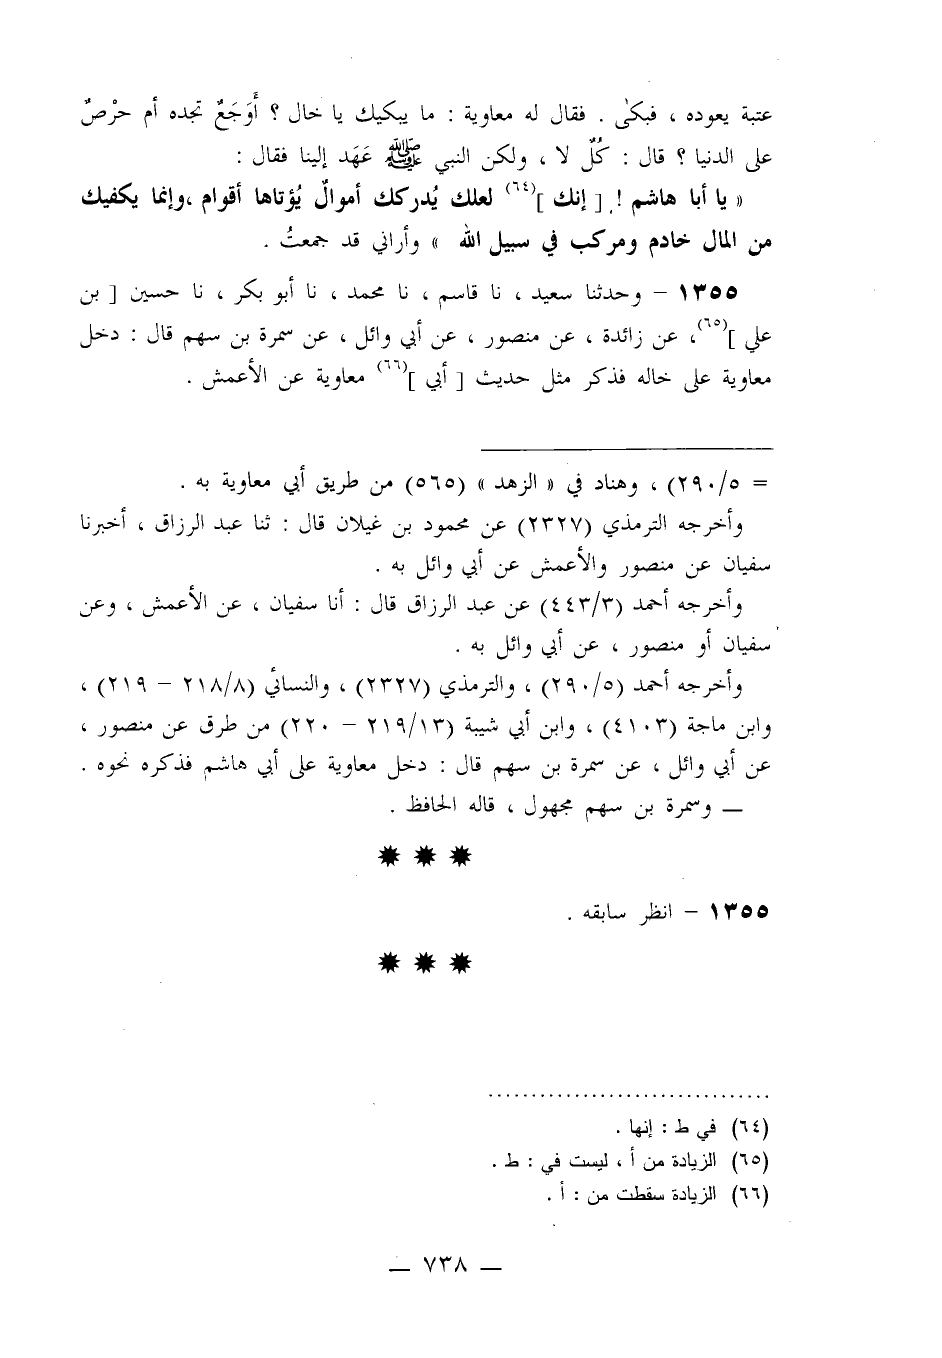 عتبة يعوده ، فبكىٰ . فقال له معاوية : ما يبكيك يا خال ؟ أَوَجَعٌ تجده أم حرْصٌ
على الدنيا ؟ قال : كُلٌ لا ، ولكن النبي ﷺ عَهَد إلينا فقال :
« يا أبا هاشم ! [ إنك ](٦٤) لعلك يُدركك أموالٌ يُؤتاها أقوام ،وإنما يكفيك
من المال خادم ومركب في سبيل الله » وأراني قد جمعتُ .
١٣٥٥ – وحدثنا سعيد ، نا قاسم ، نا محمد ، نا أبو بكر ، نا حسين [ بن
علي ](٦٥)، عن زائدة ، عن منصور ، عن أبي وائل ، عن سمرة بن سهم قال : دخل
معاوية على خاله فذكر مثل حديث [ أبي ](٦٦) معاوية عن الأعمش .
= ٢٩٠/٥) ، وهناد في « الزهد » (٥٦٥) من طريق أبي معاوية به .
وأخرجه الترمذي (٢٣٢٧) عن محمود بن غيلان قال : ثنا عبد الرزاق ، أخبرنا
سفيان عن منصور والأعمش عن أبي وائل به .
وأخرجه أحمد (٤٤٣/٣) عن عبد الرزاق قال : أنا سفيان ، عن الأعمش ، وعن
سفيان أو منصور ، عن أبي وائل به .
وأخرجه أحمد (٢٩٠/٥) ، والترمذي (٢٣٢٧) ، والنسائي (٢١٨/٨ – ٢١٩) ،
وابن ماجة (٤١٠٣) ، وابن أبي شيبة (٢١٩/١٣ – ٢٢٠) من طرق عن منصور ،
عن أبي وائل ، عن سمرة بن سهم قال : دخل معاوية على أبي هاشم فذكره نحوه .
— وسمرة بن سهم مجهول ، قاله الحافظ .
١٣٥٥ – انظر سابقه .
(٦٤) في ط : إنها .
(٦٥) الزيادة من أ ، ليست في : ط .
(٦٦) الزيادة سقطت من : أ .
— ٧٣٨ —